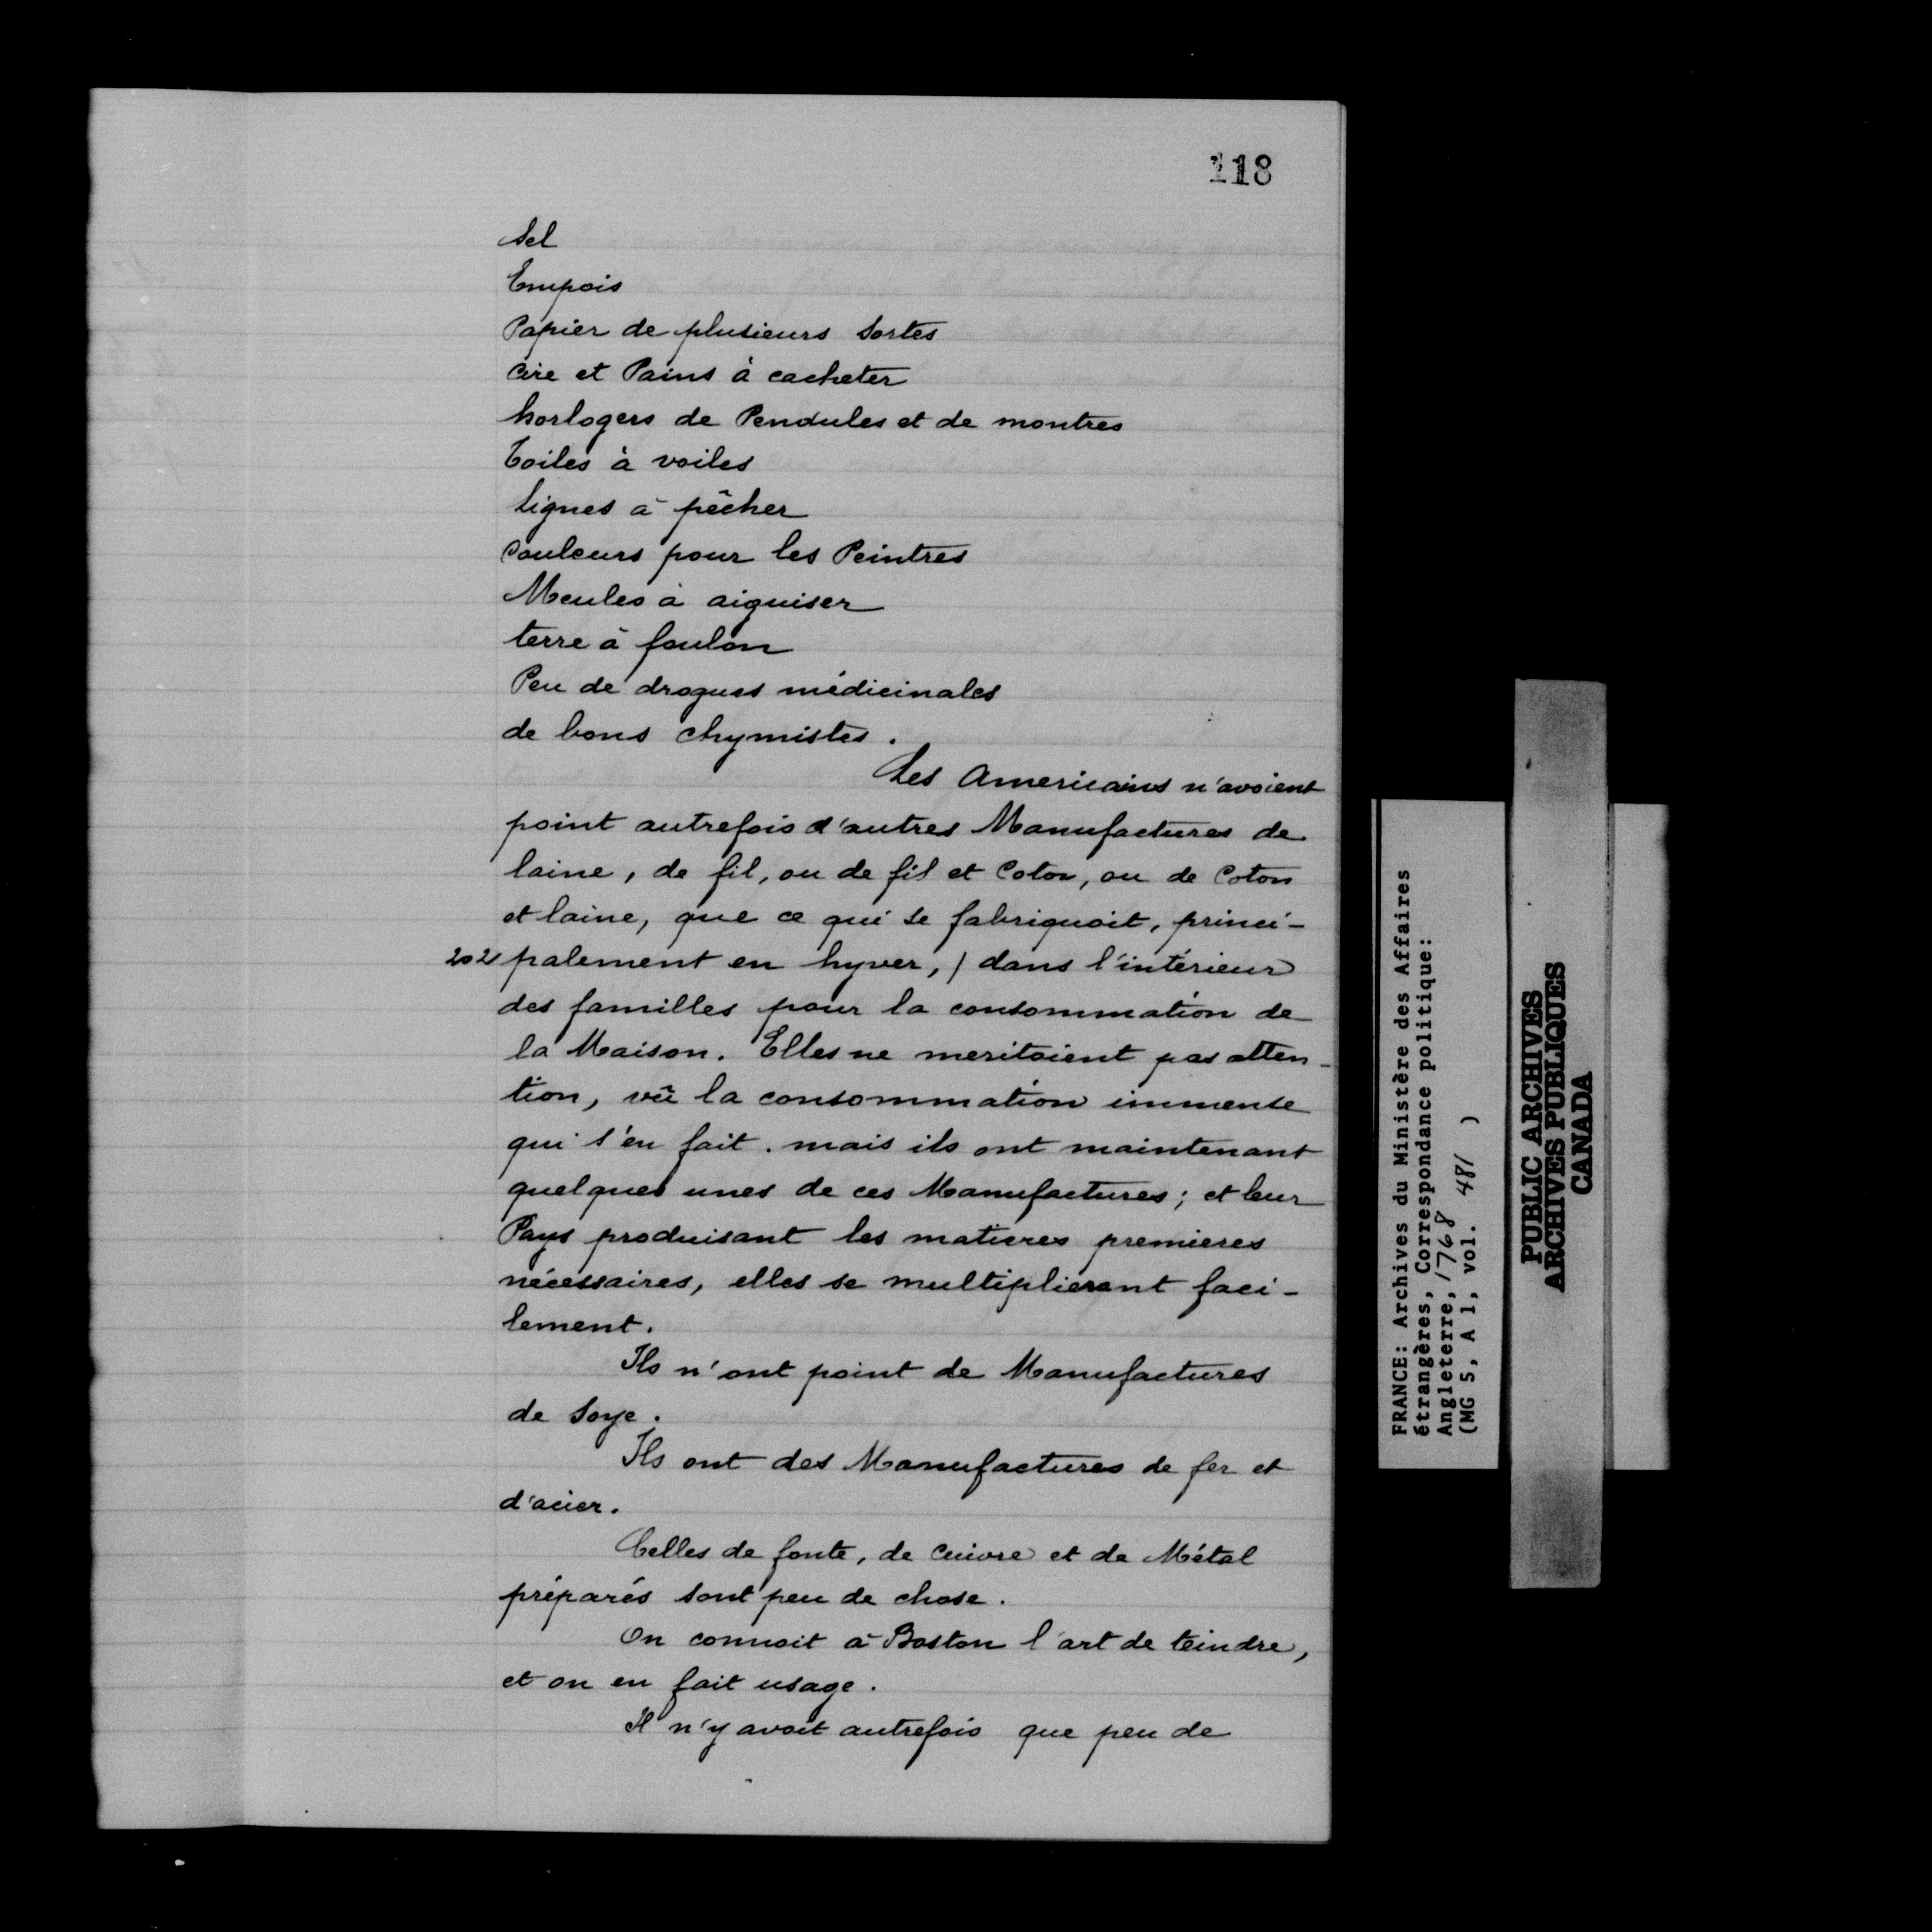 118
Sel
Empois
Papier de plusieurs sortes
Cire et Pains à cacheter
horlogers de Pendules et de montres
Toiles à voiles
Lignes à pêcher
Couleurs pour les Peintres
Meules à aiguiser
terre à foulon
Peu de drogues médicinales
de bons chymistes.
Les Americains n'avoient
point autrefois d'autres Manufactures de
laine, de fil, ou de fil et Coton, ou de Coton
et laine, que ce qui se fabriquoit, princi-
202 palement en hyver, / dans l'intérieur
des familles pour la consommation de
la Maison. Elles ne meritoient pas atten-
tion, vû la consommation immense
qui s'en fait. mais ils ont maintenant
quelques unes de ces Manufactures; et leur
Pays produisant les matieres premieres
nécessaires, elles se multiplieront faci-
lement.
Ils n'ont point de Manufactures
de Soye.
Ils ont des Manufactures de fer et
d'acier.
Celles de fonte, de Cuivre et de Métal
préparés sont peu de chose.
On connoit à Boston l'art de teindre,
et on en fait usage.
Il n'y avoit autrefois que peu de
FRANCE: Archives du Ministère des Affaires
étrangères, Correspondance politique:
Angleterre, 1768
(MG 5, A 1, vol. 481 )
PUBLIC ARCHIVES
ARCHIVES PUBLIQUES
CANADA